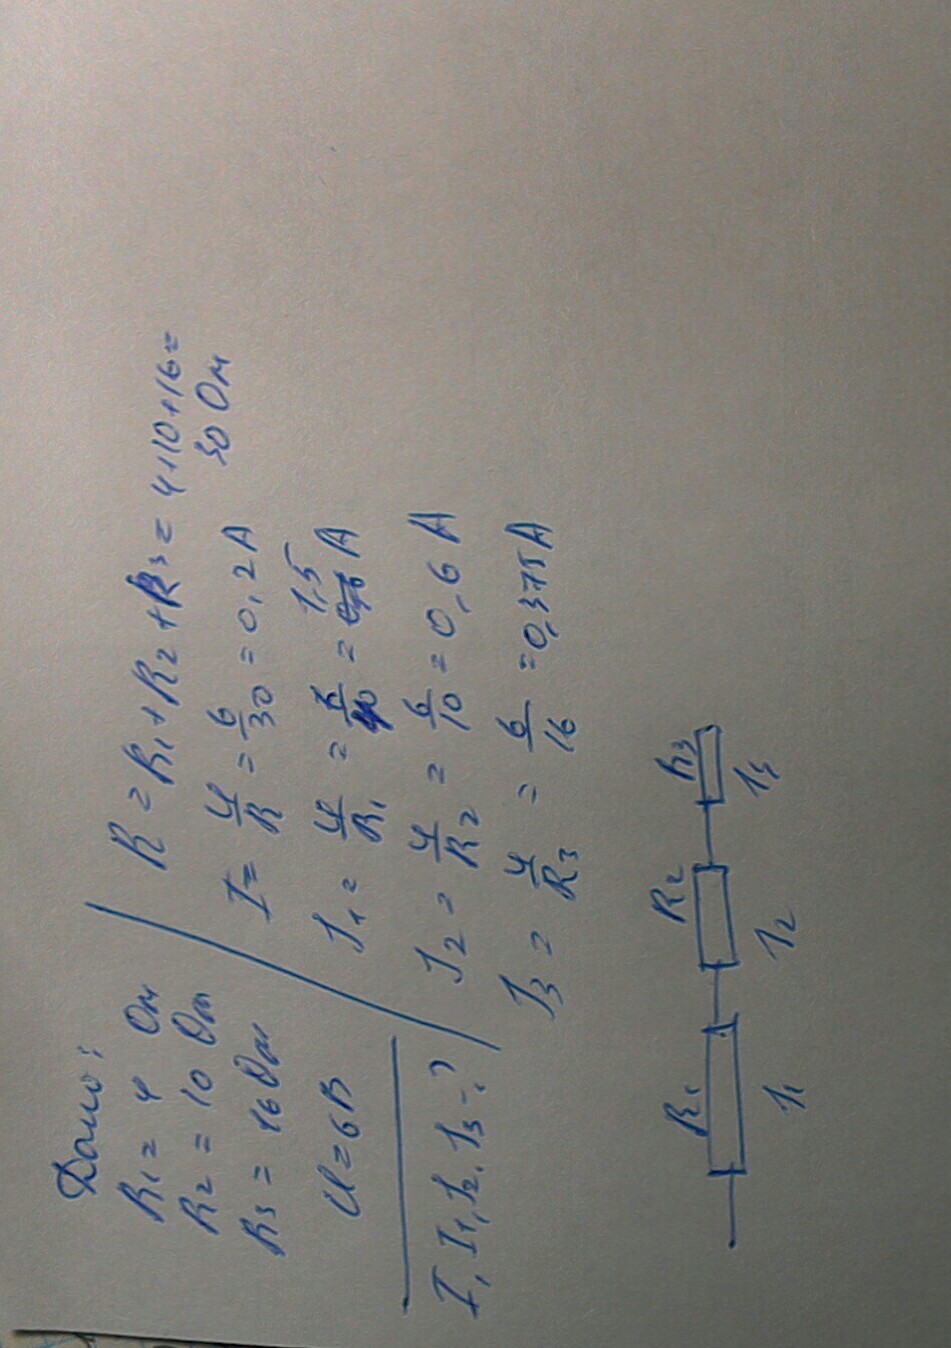 Дано:
R1 = 4 Ом
R2 = 10 Ом
R3 = 16 Ом
U = 6 В
I, I1, I2, I3 - ?
R = R1 + R2 + R3 = 4+10+16 =
30 Ом
I = U/R = 6/30 = 0,2 A
I1 = U/R1 = 6/4 = 1,5 A
I2 = U/R2 = 6/10 = 0,6 A
I3 = U/R3 = 6/16 = 0,375 A
R1 R2 R3
I1 I2 I3